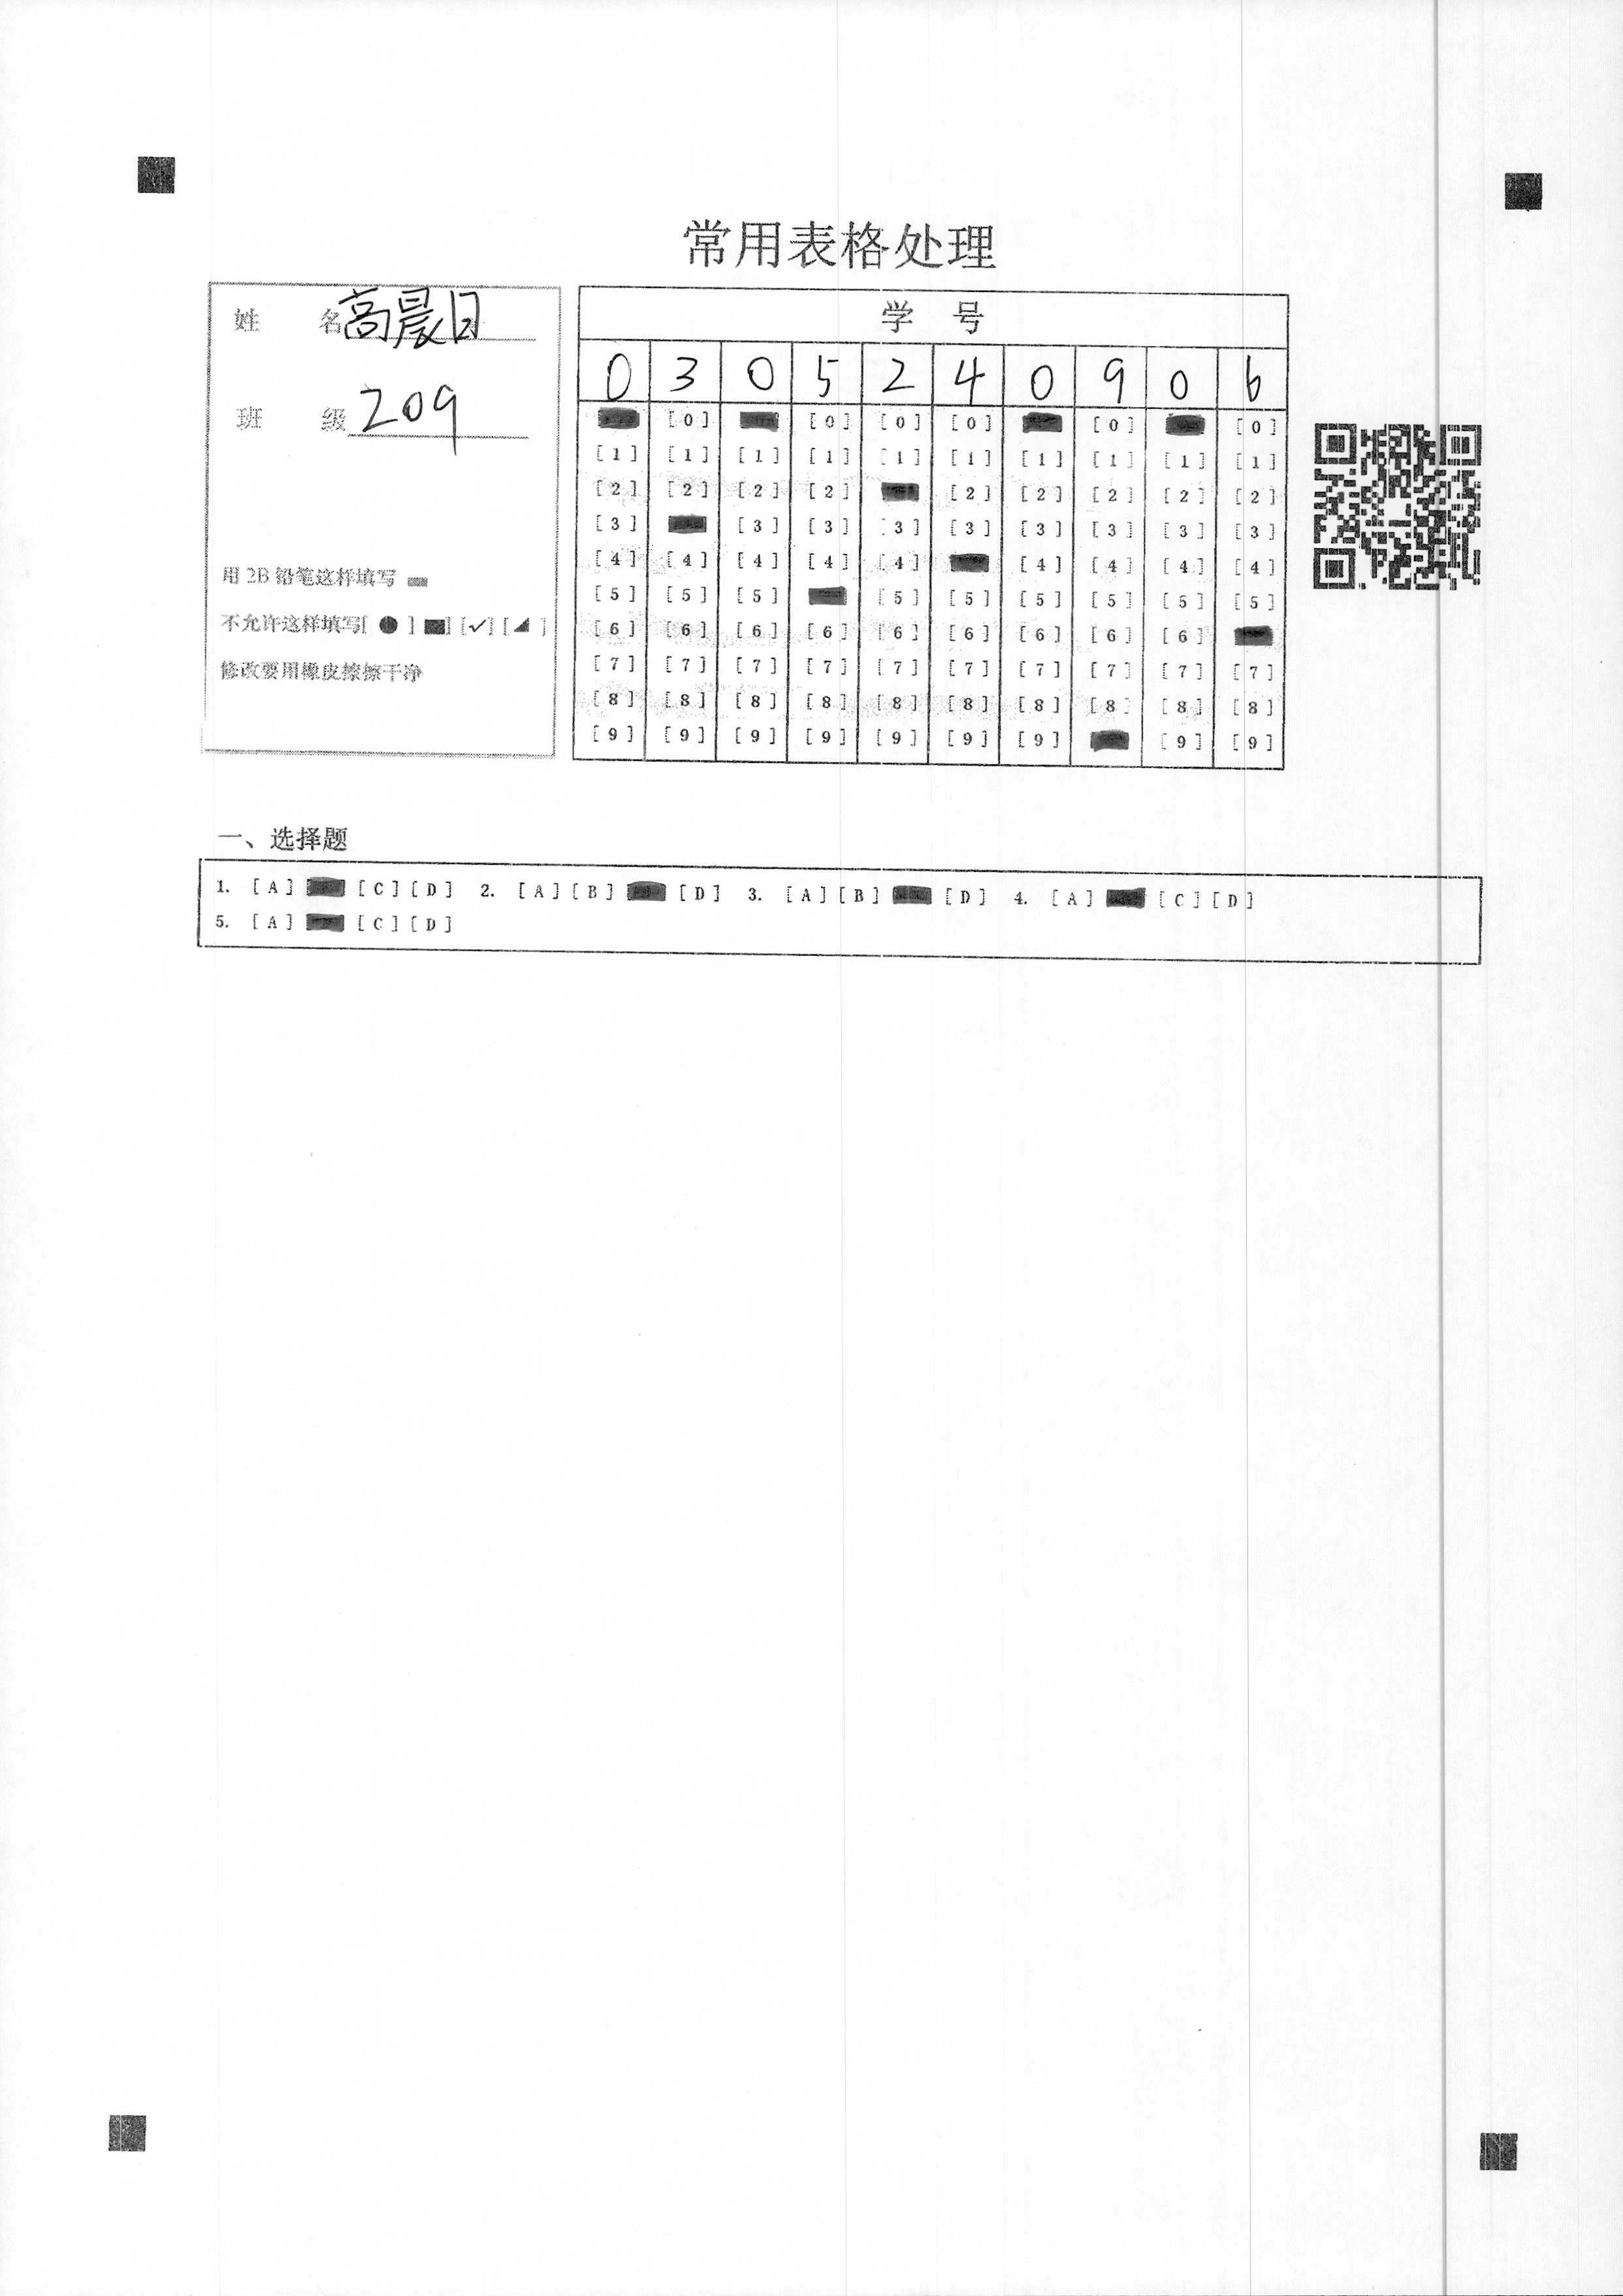 常用表格处理
姓 名 高晨日
班 级 209
用 2B 铅笔这样填写
不允许这样填写[ ● ] ■] [✓] [◢ ]
修改要用橡皮擦擦干净
学 号
0 3 0 5 2 4 0 9 0 6
[0] [0] [0] [0] [0] [0]
[1] [1] [1] [1] [1] [1] [1] [1] [1] [1]
[2] [2] [2] [2] [2] [2] [2] [2] [2]
[3] [3] [3] [3] [3] [3] [3] [3] [3]
[4] [4] [4] [4] [4] [4] [4] [4] [4]
[5] [5] [5] [5] [5] [5] [5] [5] [5]
[6] [6] [6] [6] [6] [6] [6] [6] [6]
[7] [7] [7] [7] [7] [7] [7] [7] [7] [7]
[8] [8] [8] [8] [8] [8] [8] [8] [8] [8]
[9] [9] [9] [9] [9] [9] [9] [9] [9]
一、选择题
1. [A] [C] [D] 2. [A] [B] [D] 3. [A] [B] [D] 4. [A] [C] [D]
5. [A] [C] [D]